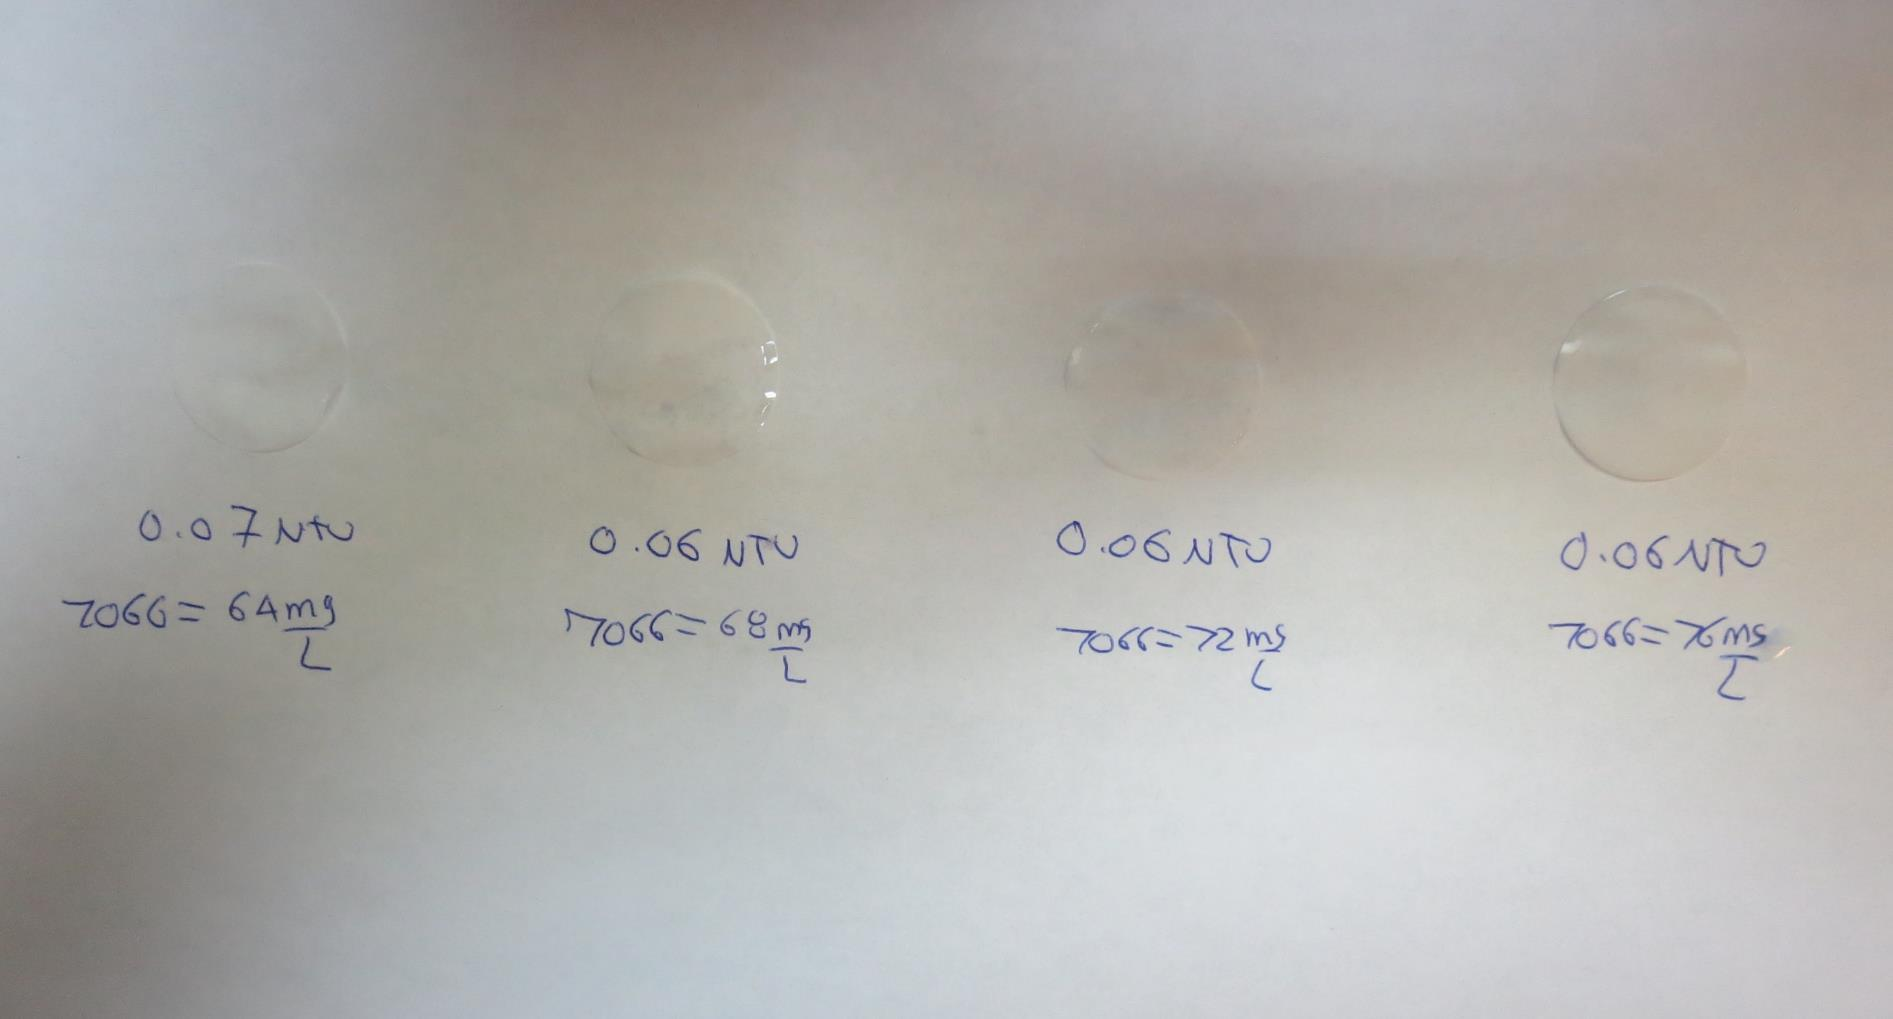 0.07 NTU
7066 = 64 mg/L
0.06 NTU
7066 = 68 mg/L
0.06 NTU
7066 = 72 mg/L
0.06 NTU
7066 = 76 mg/L